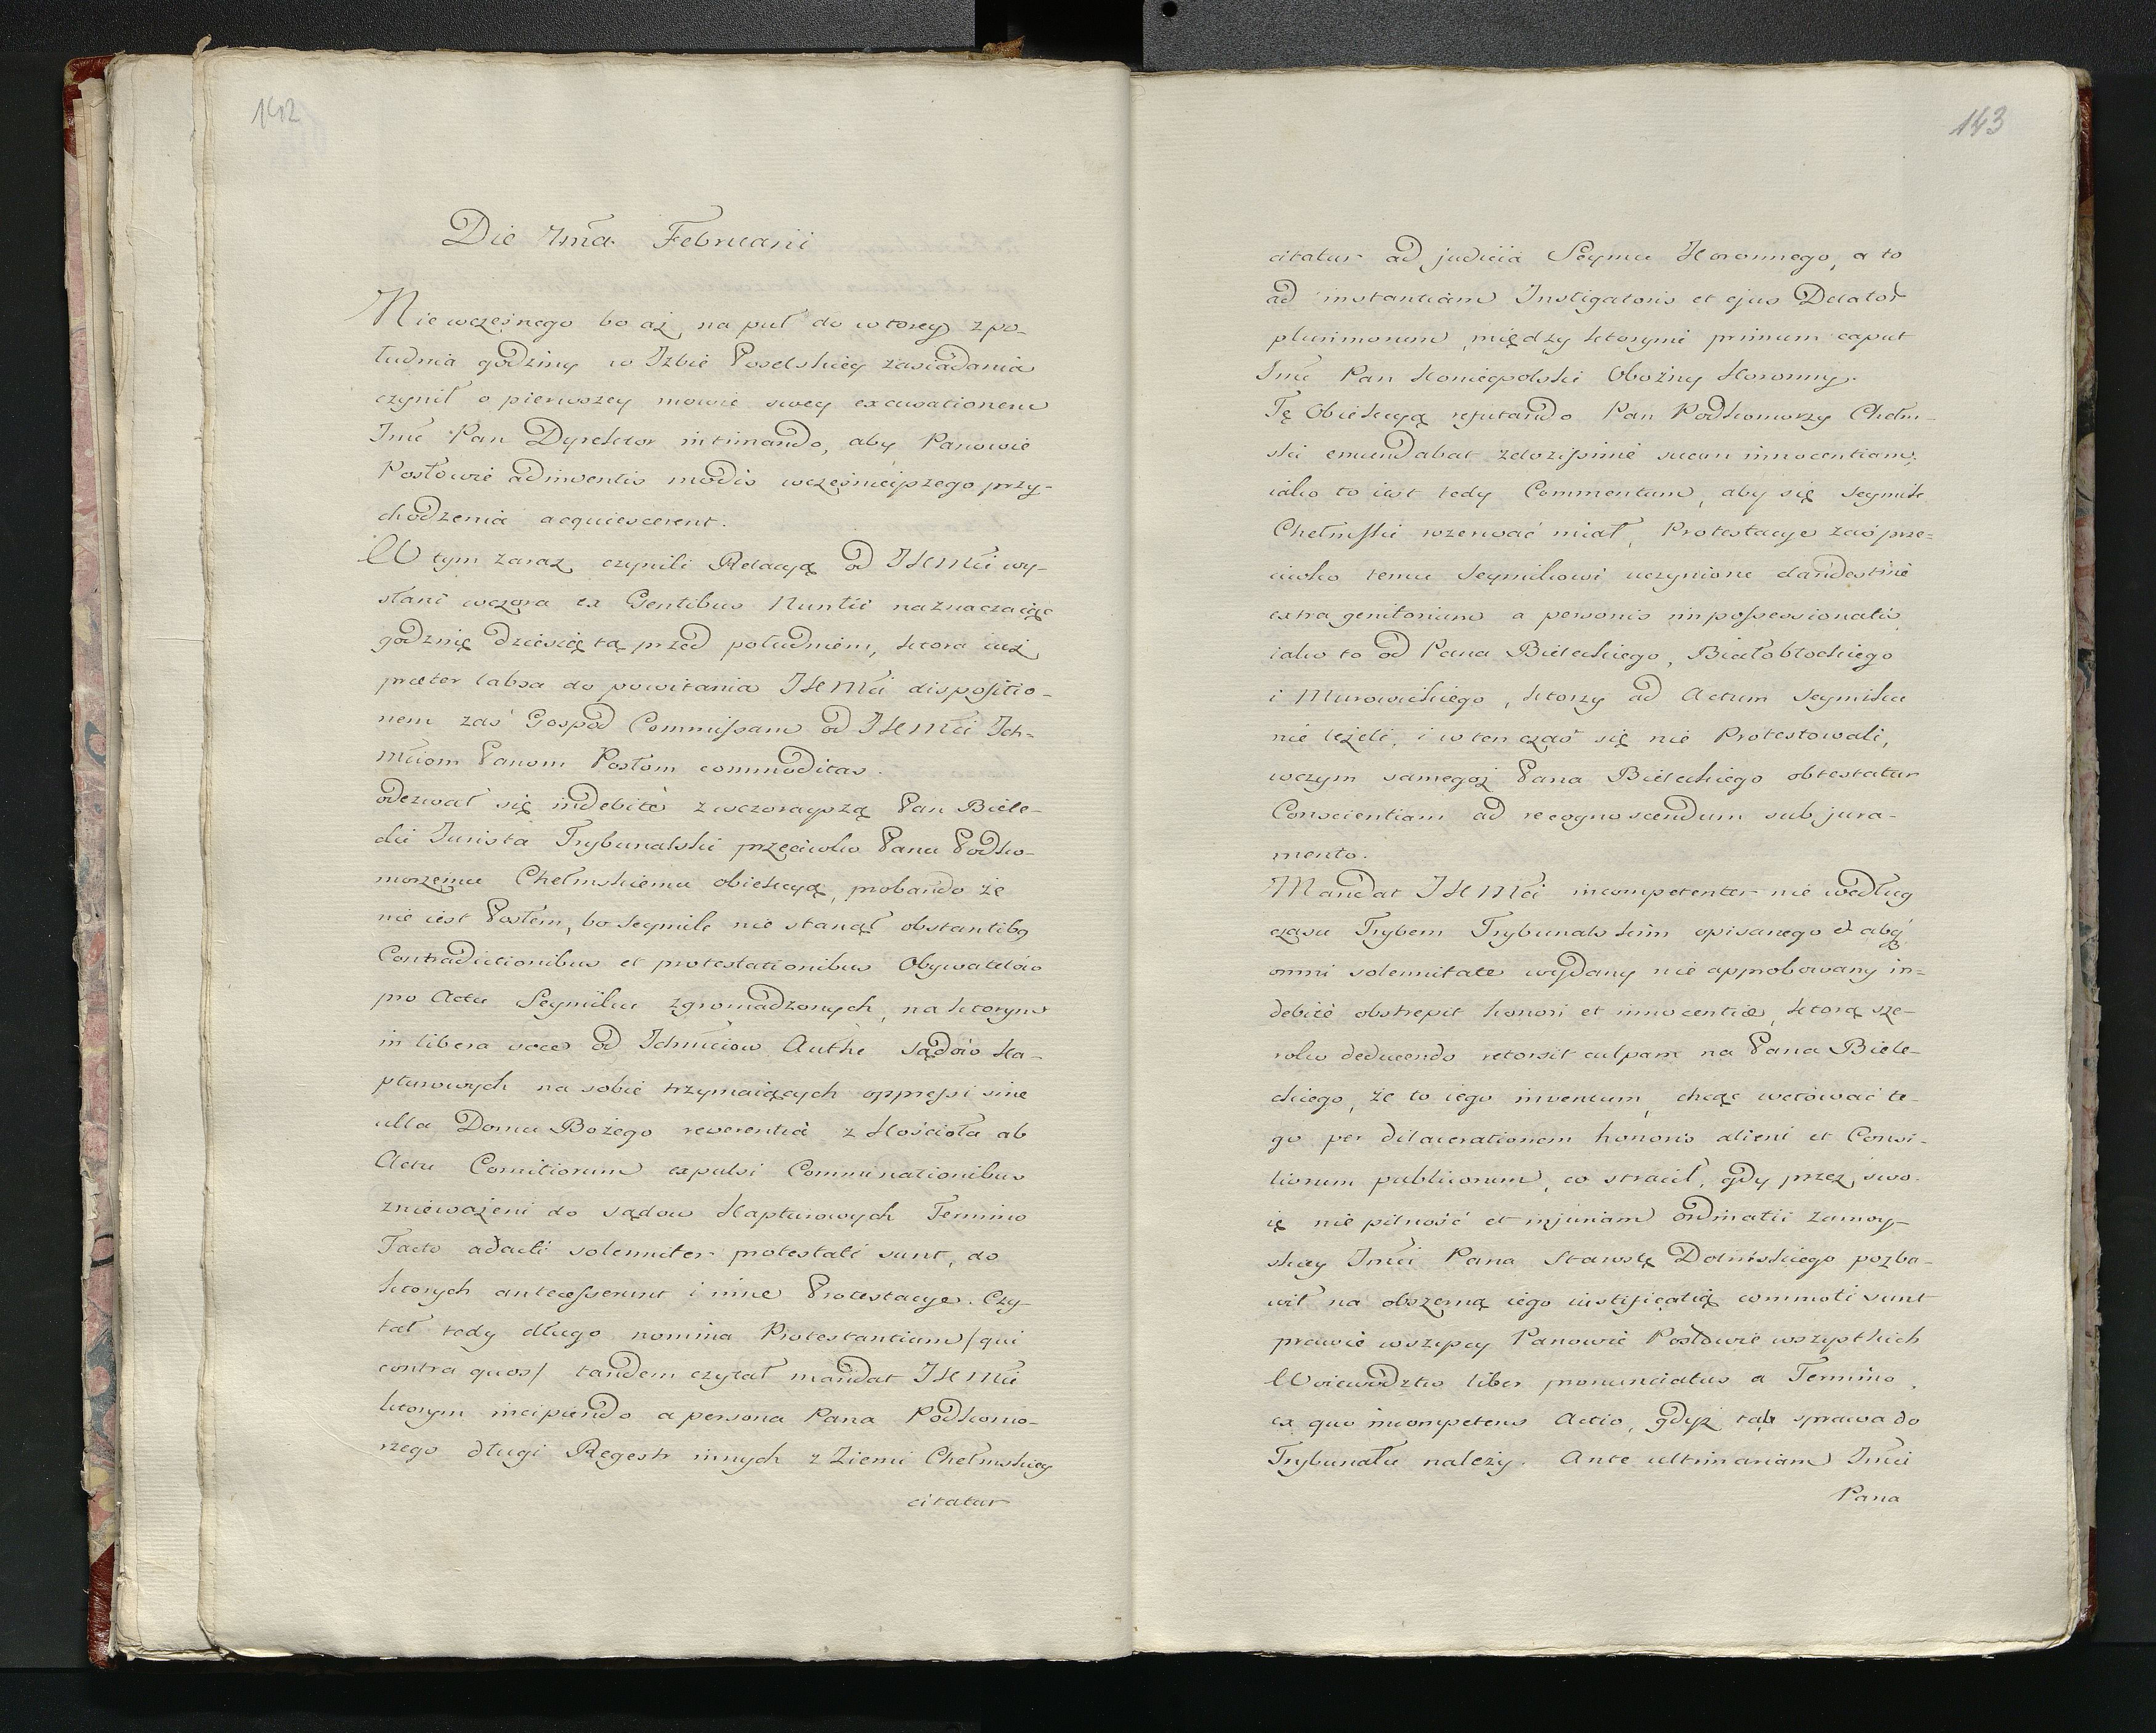 142
Die 7ma Februarii
Niewczesnego bo aż na puł do wtorey z po-
łudnia godziny w Izbie Poselskiey zasiadania
czynił o pierwszey mowie swey excusationem
Jmć Pan Dyrektor intimando, aby Panowie
Posłowie adinventis modis wcześnieiszego przy-
chodzenia acquiescerent.
W tym zaraz czynili Relacyą od JKMći wy-
słani wczora ex Gentibus Nuntii naznaczaiąc
godzinę dziesiętą przed południem, ktora iuż
præter labsa do powitania JKMći dispositio-
nem zaś Gospod Commissam od JKMći Ich-
mćiom Panom Posłom commoditas.
odezwał się indebitè z wczorayszą Pan Biele-
cki Iurista Trybunalski przeciwko Panu Podko-
morzemu Chełmskiemu obiekcyą, probando że
nie iest Posłem, bo Seymik nie stanął obstantibq
Contradictionibus et protestationibus Obywatelów
pro Actu Seymiku zgromadzonych, na ktorym
in libera voce od Ichmciow Authe Sądów Ka-
pturowych na sobie trzymaiących oppressi sine
ulla Domu Bożego reverentia z Kościoła ab
Actu Comitiorum expulsi Comminationibus
znieważeni do sądow Kapturowych Termino
Tacto adacti solemniter protestati sunt, do
ktorych antecesserunt i inne Protestacye. Czy-
tał tedy długo nomina Protestantium/qui
contra quos/ tandem czytał mandat JKMći
ktorym incipiendo a persona Pana Podkomo-
rzego długi Regestr innych z Ziemi Chełmskiey
citatur
143
citatur ad judicia Seymu Koronnego, a to
ad instantiam Instigatoris et ejus Delator
plurimorum między ktorymi primum caput
Jmć Pan Koniecpolski Oboźny Koronny.
Tę Obiekcyą refutando Pan Podkomorzy Chełm-
ski emendabat zelozissime suam innocentiam,
iako to iest tedy Commentum, aby się Seymik
Chełmski rozerwać miał, Protestacye zaś prze-
ciwko temu Seymikowi uczynione clandestine
extra genitorium a personis impossessionatis
iako to od Pana Bieleckiego, Białobłockiego
i Murowickiego, ktorzy ad Actum Seymiku
nie leżeli, i w ten czas się nie Protestowali,
w czym samegoż Pana Bieleckiego obtestatur
Conscientiam ad recognoscendum sub jura-
mento.
Mandat JKMći incompetenter nie według
czasu Trybem Trybunalskim opisanego et absq
omni solemnitate wydany nie approbowany in-
debitè obstrepit honori et innocentiæ, ktorą sze-
roko deducendo retorsit culpam na Pana Biele-
ckiego, że to iego inventum, chcąc wetować te-
go per dilacerationem honoris alieni et Consi-
liorum publicorum, co stracił, gdy przez swo-
ię nie pilność et injuriam Ordinatii Zamoy-
skiey Jmći Pana Starostę Dolińskiego pozba-
wił na obszerną iego iustificatią commoti sunt
prawie wszyscy Panowie Posłowie wszystkich
Woiewodztw liber pronunciatus a Termino,
ex quo incompetens Actio, gdyż tak sprawa do
Trybunału należy. Ante ultimariam Jmći
Pana